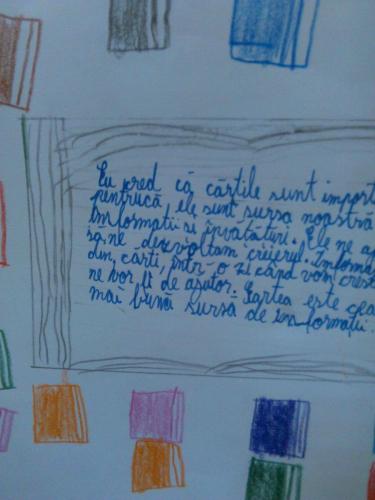 Eu cred că cărțile sunt import
pentrucă, ele sunt sursa noastră
informații și învătături. Ele ne a
să ne dezvoltam creierul. Informa
din cărti, într-o zi când vom crest
ne vor fi de ajutor. Cartea este cea
mai bună sursă de informații.